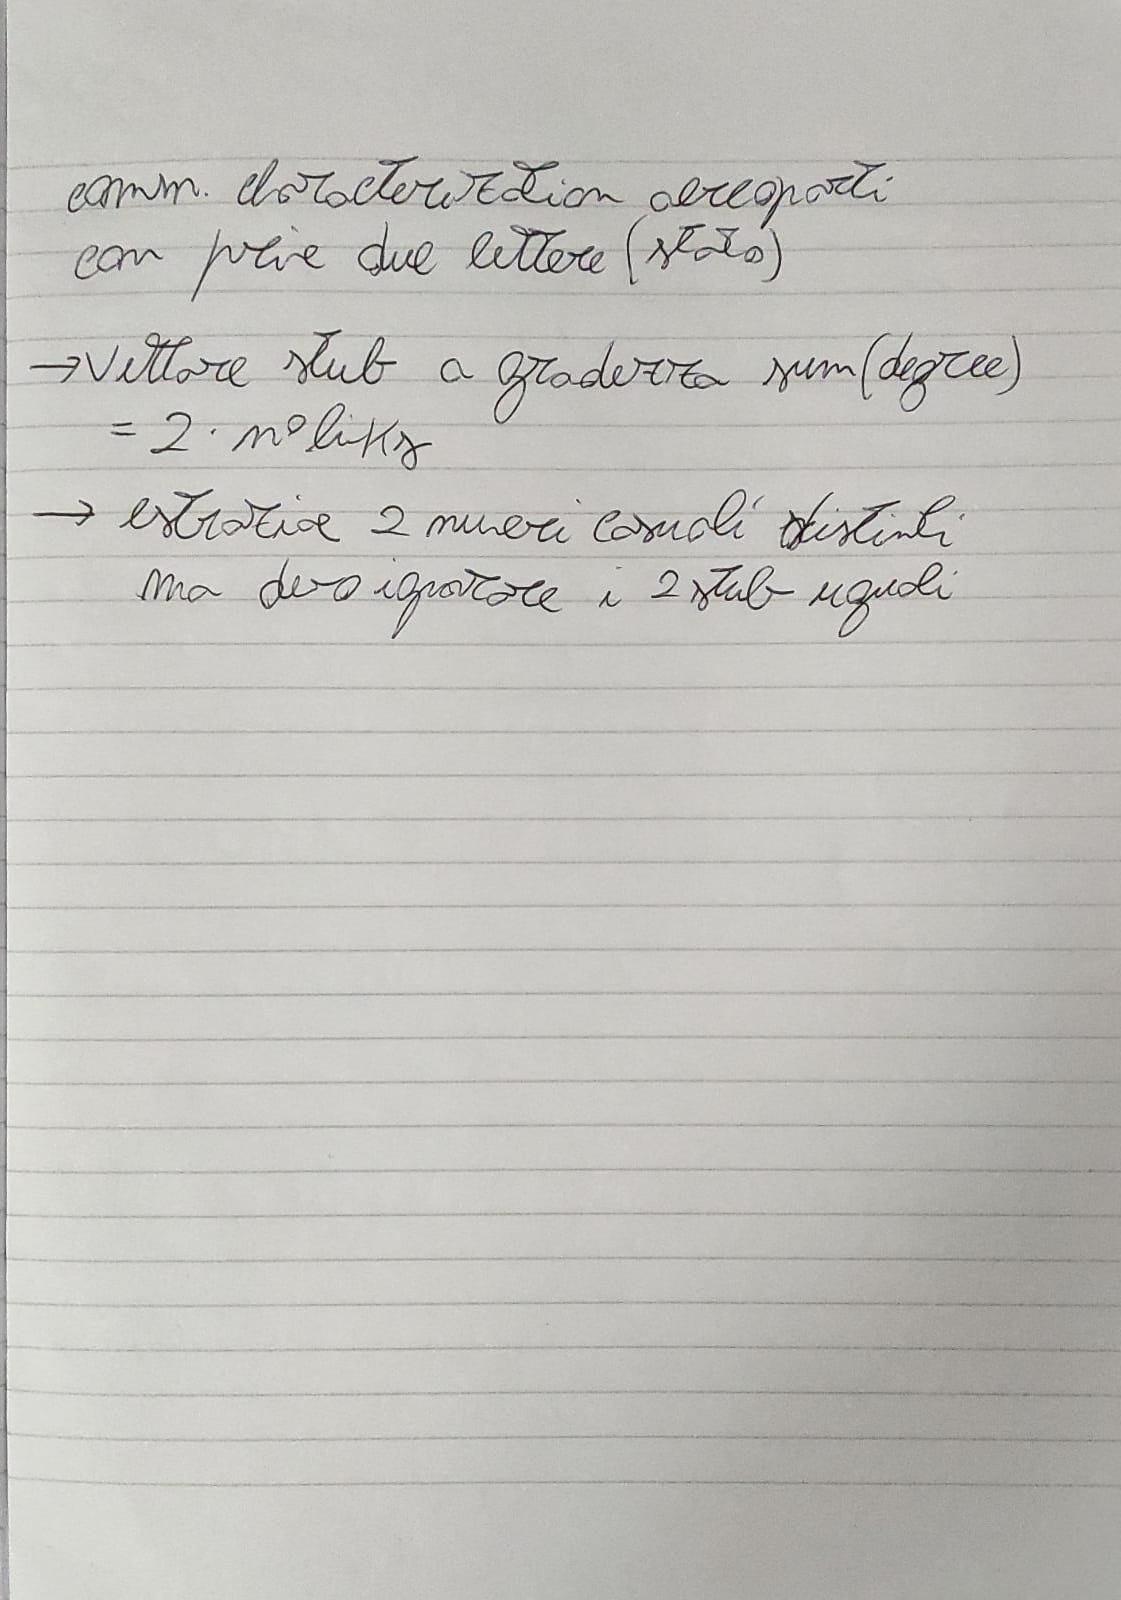 comm. characterization aereoporti
con prime due lettere (stato)
→ Vettore stub a grandezza sum(degree)
= 2 · n° links
→ estrazione 2 numeri casuali distinti
ma devo ignorare i 2 stub uguali